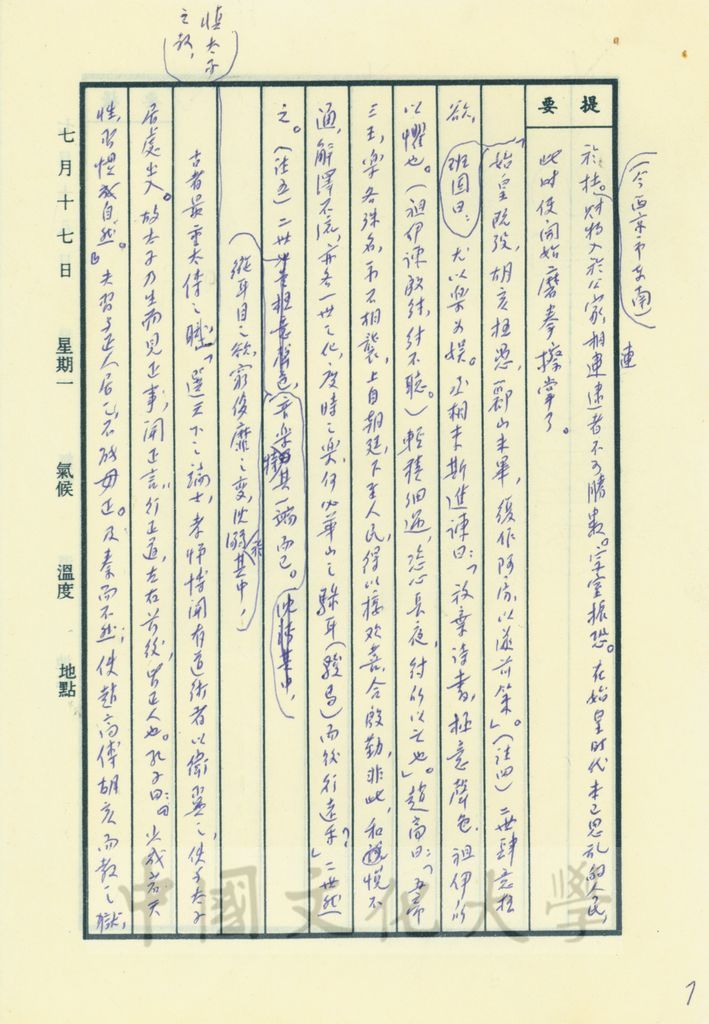 提要
(今西京市東南)
於杜。財物入於公家,相連逮者不可勝數。宗室振恐。在始皇時代未已思亂的人民,
連
此時便開始磨拳擦掌了。
「始皇既歿,胡亥極愚,酈山未畢,復作阿房,以遂前策」。(註四)二世肆意極
欲,
班固曰:
尤以樂為娛。丞相李斯進諫曰:「放棄詩書,極意聲色,祖伊所
以懼也。(祖伊諫殷紂,紂不聽。)輕積細過,恣心長夜,紂所以亡也」。趙高曰:「五帝
三王,樂各殊名,示不相襲,上自朝廷,下至人民,得以接歡喜,合殷勤,非此,和說不
通,解澤不流,亦各一世之化,度時之樂,何必華山之騄耳(駿馬)而後行遠乎?」二世然
之。(註五)二世
音樂
其一端而已。
縱耳目之欲,窮侈靡之變,沈溺
其中,
慎太子
之教,
古者最重太傅之職,「選天下之端士,孝悌博聞有道術者以衛翼之,使與太子
居處出入。故太子乃生而見正事,聞正言,行正道,左右前後,皆正人也。孔子曰:少成若天
性,習慣成自然。」夫習與正人居之,不能毋正。及秦而不然;使趙高傅胡亥而教之獄,
七月十七日 星期一 氣候 溫度 地點
中國文化大學
7